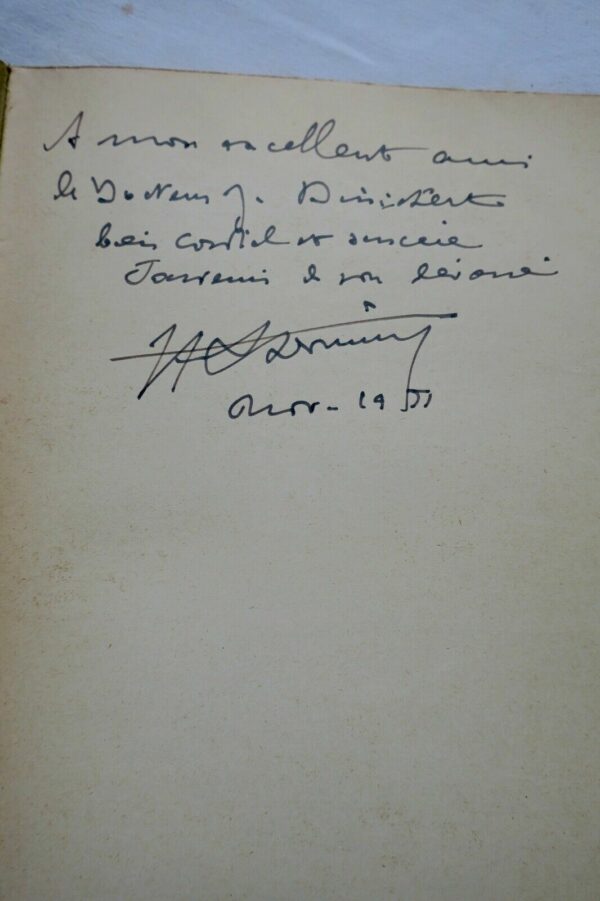 A mon excellent ami
le Docteur J.
bien cordial et sincère
Souvenir de son dévoué
Nov. 1951